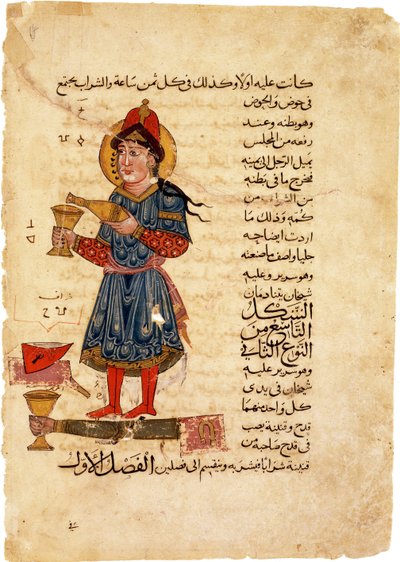 كانت عليه اولا وكذلك فى كل ثمن ساعة والشراب يجتمع
فى حوض والحوض
وهو بطنه وعند
رفعه من المجلس
يميل الرجل الى يمينه
فيخرج ما فى بطنه
من الشراب من
كمه وذلك ما
اردت ايضاحه
جليا واصف ما صنعته
وهو سرير وعليه
شيخان يتنادمان
الشكل
التاسع من
النوع الثانى
وهو سرير عليه
شيخان فى يدى
كل واحد منهما
قدح وقنينة يصب
فى قدح صاحبه من
قنينة شرابا فيشربه وينقسم الى فصلين الفصل الاول